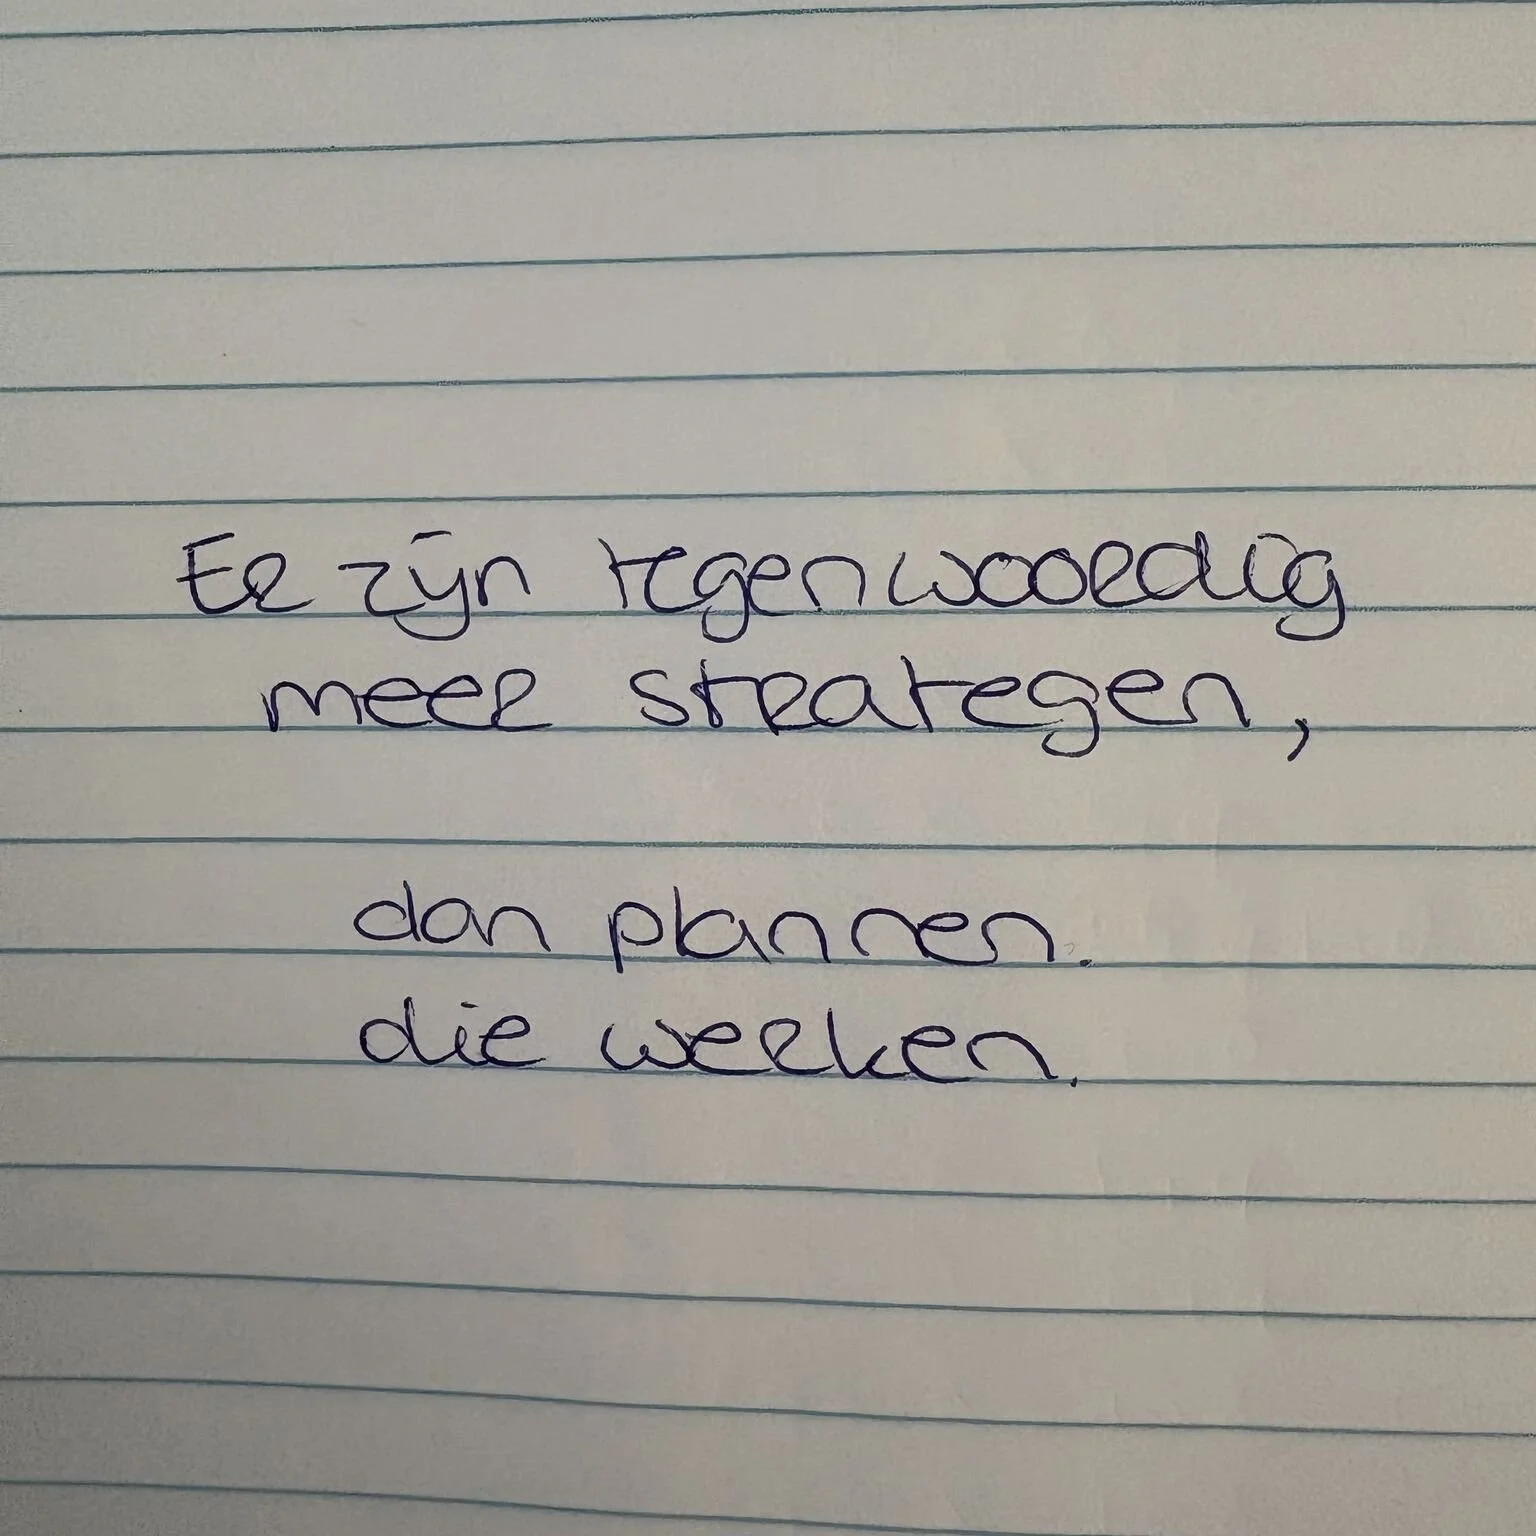 Er zijn tegenwoordig
meer strategen,
dan plannen.
die werken.